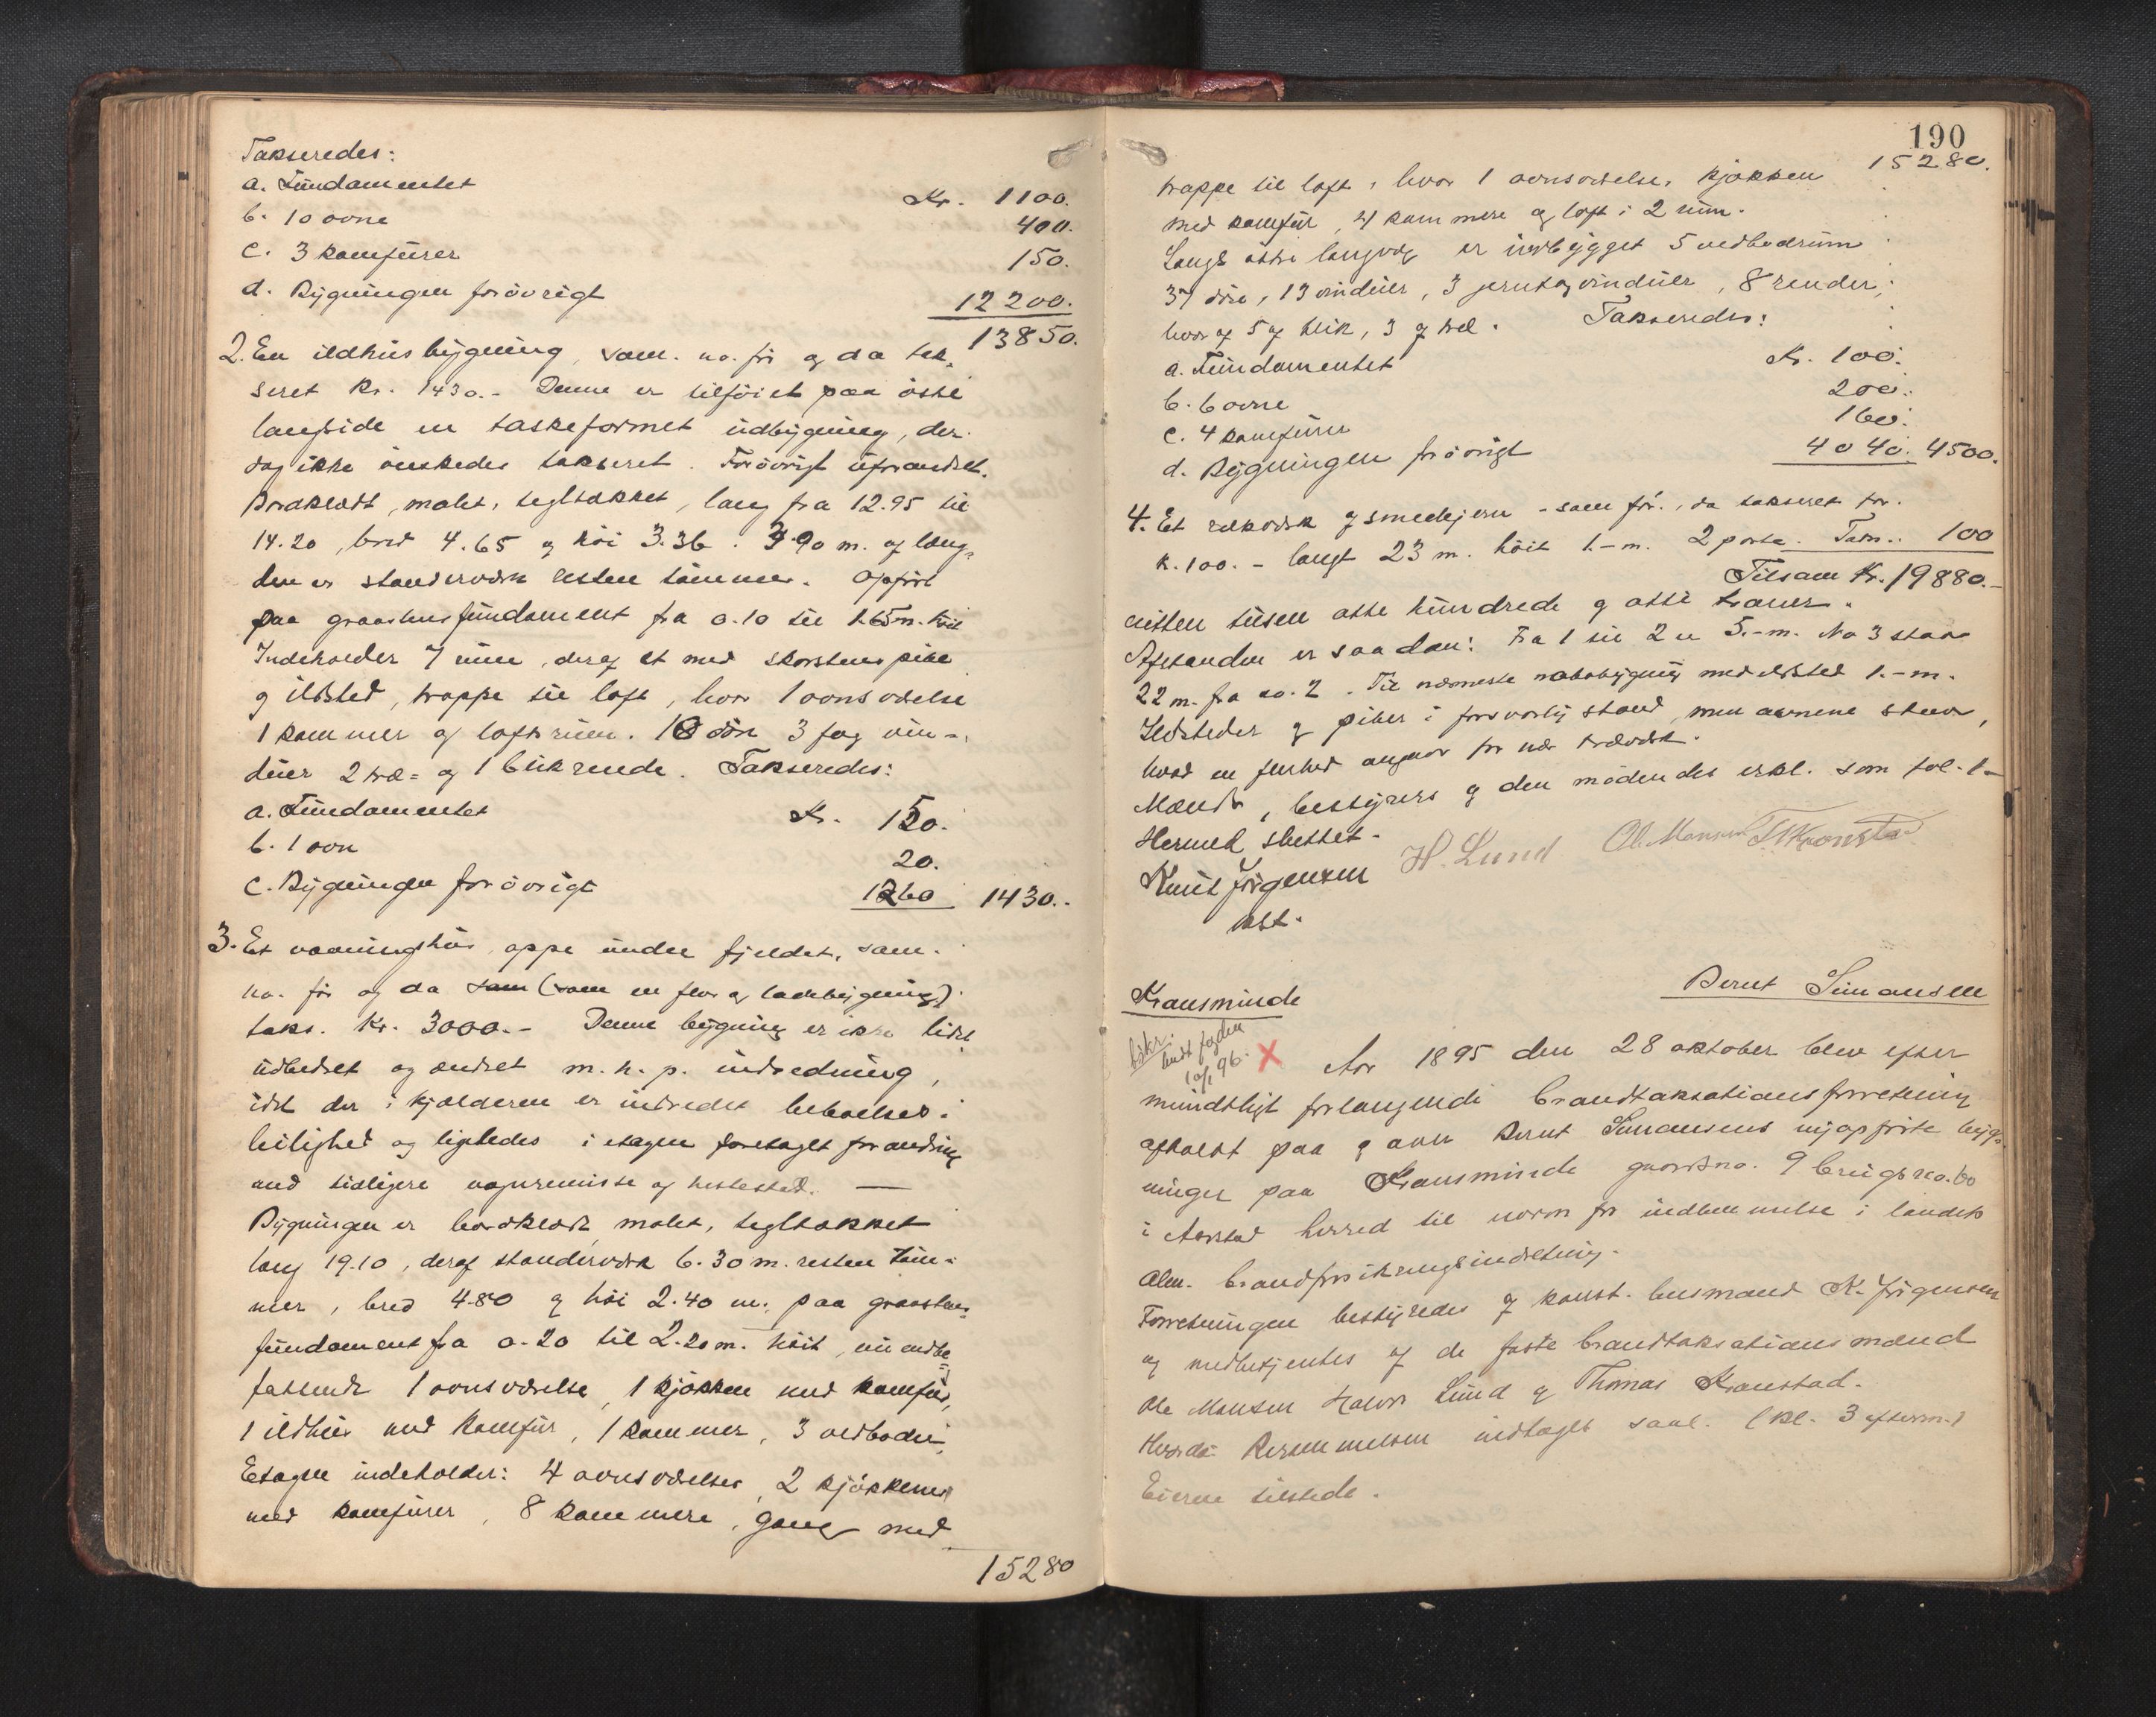 Takseredes:
a. Fundamentet Kr. 1100.
b. 10 ovne 400.
c. 3 komfurer 150.
d. Bygningen forövrigt 12200.
13850.
2. En ildhusbygning, sam. no. för og da tak-
seret Kr. 1430.- Denne er tilföiet paa östre
langside en taskeformet udbygning, der
dog ikke önskedes takseret. Forövrigt uforandret.
Bordklædt, malet, tegltækket, lang fra 12.95 til
14.20, bred 4.65 og höi 3.36. 3.90 m. af læng-
den er standerværk resten tömmer. Opfört
paa graastensfundament fra 0.10 til 1.65 m. höit
Indeholder 7 rum, deraf et med skorstenspibe
og ildsted, trappe til loft, hvor 1 ovnsværelse
1 kammer og loftsrum. 18 döre 3 fag vin-
duer 2 træ= og 1 blikrende. Takseredes:
a. Fundamentet Kr. 150.
b. 1 ovn 20.
c. Bygningen forövrigt 1260 1430.-
3. Et vaaningshus oppe under fjeldet, sam.
no. för og da som (som en flor og ladebygning)
taks. Kr. 3000.- Denne bygning er ikke lidet
udbedret og ændret m. h. p. indredning,
idet der i kjælderen er indredet beboelses-
leilighed og ligeledes i etagen foretaget forandring
med tidligere vognremisse og hestestald. —
Bygningen er bordklædt, malet, tegltækket
lang 19.10, deraf standerværk 6.30 m. resten töm-
mer, bred 4.80 og höi 2.40 m. paa graastens-
fundament fra 0.20 til 2.20 m. höit, nu indbe-
fattende 1 ovnsværelse, 1 kjökken med komfur,
1 ildhus med komfur, 1 kammer, 3 vedboder.
Etagen indeholder: 4 ovnsværelser, 2 kjökkener
med komfurer, 8 kammere, gang med
15280
190
15280.
trappe til loft, hvor 1 ovnsværelse, kjökken
med komfur, 4 kammere og loft i 2 rum.
Langs östre langvæg er indbygget 5 vedbodrum
37 döre, 13 vinduer, 3 jerntagvinduer, 8 render,
hvoraf 5 af blik, 3 af træ. Takseredes:
a. Fundamentet Kr. 100.
b. 6 ovne 200.
c. 4 komfurer 160.
d. Bygningen forövrigt 4040. 4500.
4. Et rækværk af smedejern - som för, da takseret for
K. 100. - langt 23 m. höit 1.- m. 2 porte. Taks.: 100
Tilsam Kr. 19880.-
nitten tusen otte hundrede og otti kroner.
Afstanden er saadan: Fra 1 til 2 er 5.- m. No 3 staar
22 m. fra no. 2. Til nærmeste nabobygning med ildsted 1.- m.
Ildsteder og piber i forsvarlig stand, men ovnene staar,
hvad en flerhed angaar for nær træværk.
Mænds, bestyrers og den mödendes erkl. som fol. 1-
Hermed sluttet.
Knut Jörgensen H. Lund Ol. Monsen T Kronstad
kst.
Kransminde Bernt Simonsen
X Aar 1895 den 28 oktober blev efter
mundtligt forlangende brandtaksationsforretning
afholdt paa og over Bernt Simonsens nyopförte byg-
ninger paa Kransminde gaardsno. 9 brugsno. 60
i Aarstad herred til norm for indlemmelse i landets
alm. brandforsikringsindretning.
Forretningen bestyredes af konst. lensmand K. Jörgensen
og medbetjentes af de faste brandtaksationsmænd
Ole Monsen Halvor Lund og Thomas Kronstad.
Hvorda Besemmelsen indtoges saal. (kl. 3 efterm.)
Eieren tilstede.